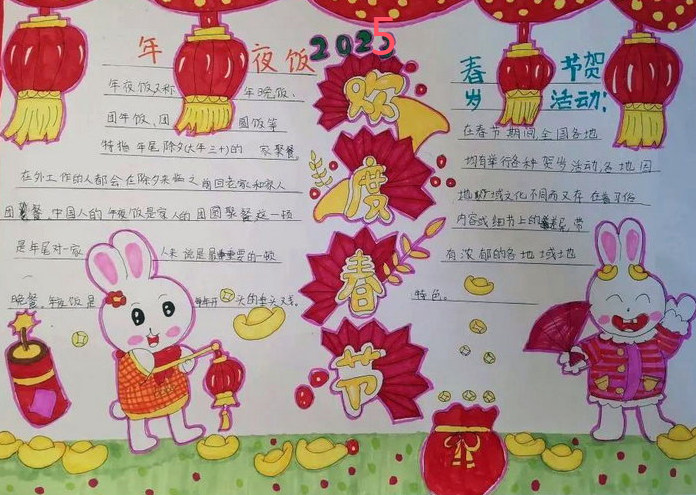 年夜饭
2025
年夜饭又称 年晚饭、
团年饭、团 圆饭等
特指年尾除夕(大年三十)的 家聚餐。
在外工作的人都会在除夕来临之前回老家和家人
团聚餐,中国人的年夜饭是家人的团圆聚餐这一顿
是年尾对一家 人来说是最重要的一顿
晚餐。年夜饭是 年开 头的重头戏。
欢度春节
春节贺
岁活动:
在春节期间,全国各地
均有举行各种贺岁活动,各地因
地域文化不同而又存在着习俗
内容或细节上的差异,带
有浓郁的各地域
特色。